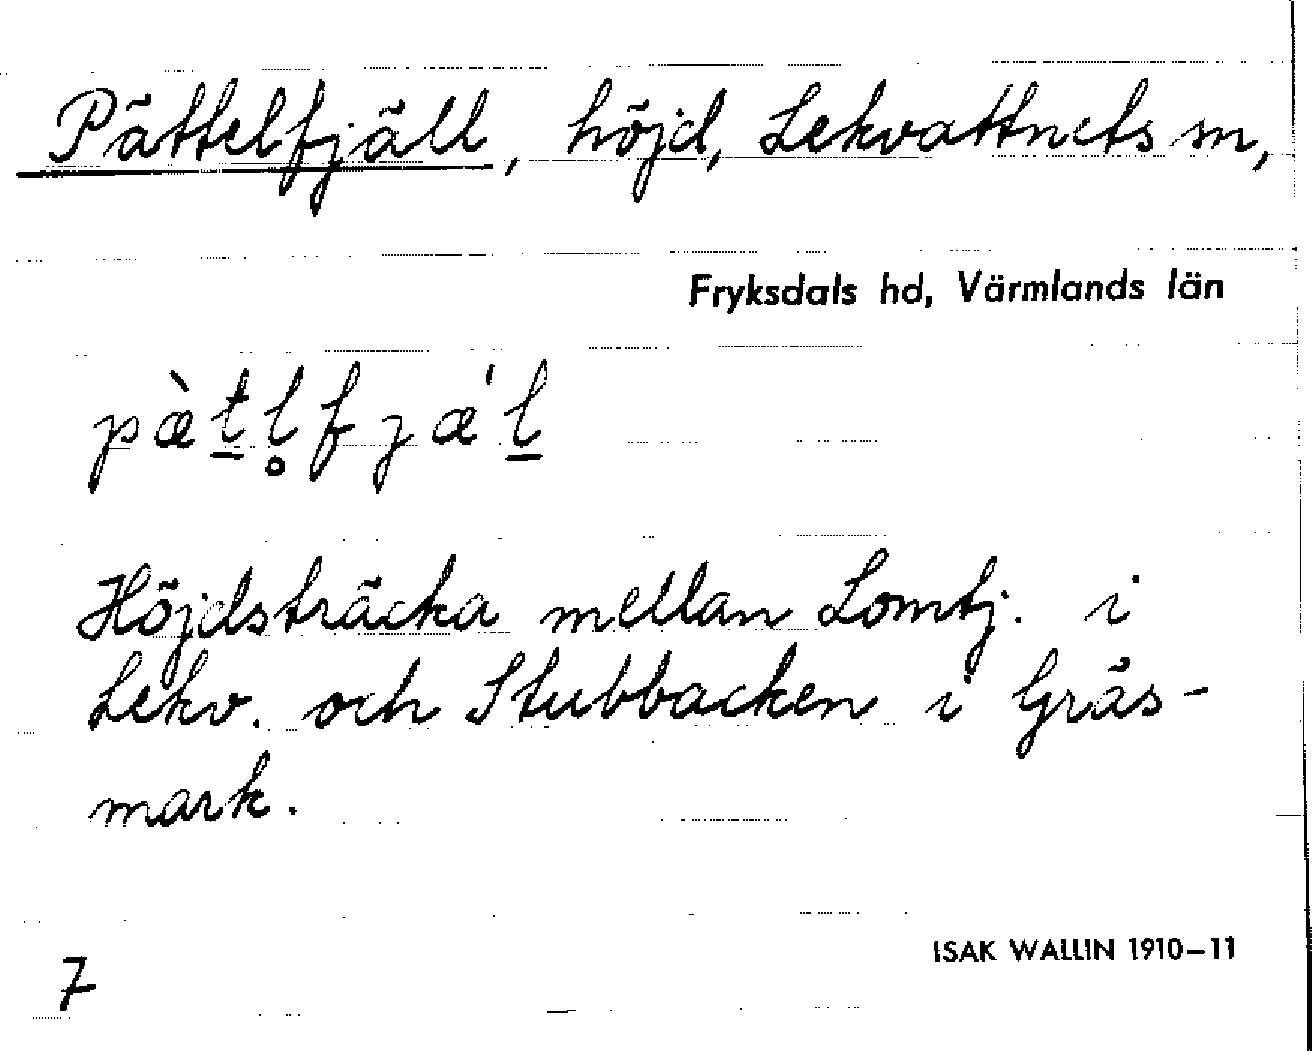 Pättelfjäll, höjd, Lekvattnets sn,
Fryksdals hd, Värmlands län
pæ̀t̲l̥fjǽl̲
Höjdsträcka mellan Lomtj. i
Lekv. och Stubbacken i Gräs-
mark.
ISAK WALLIN 1910–11
7